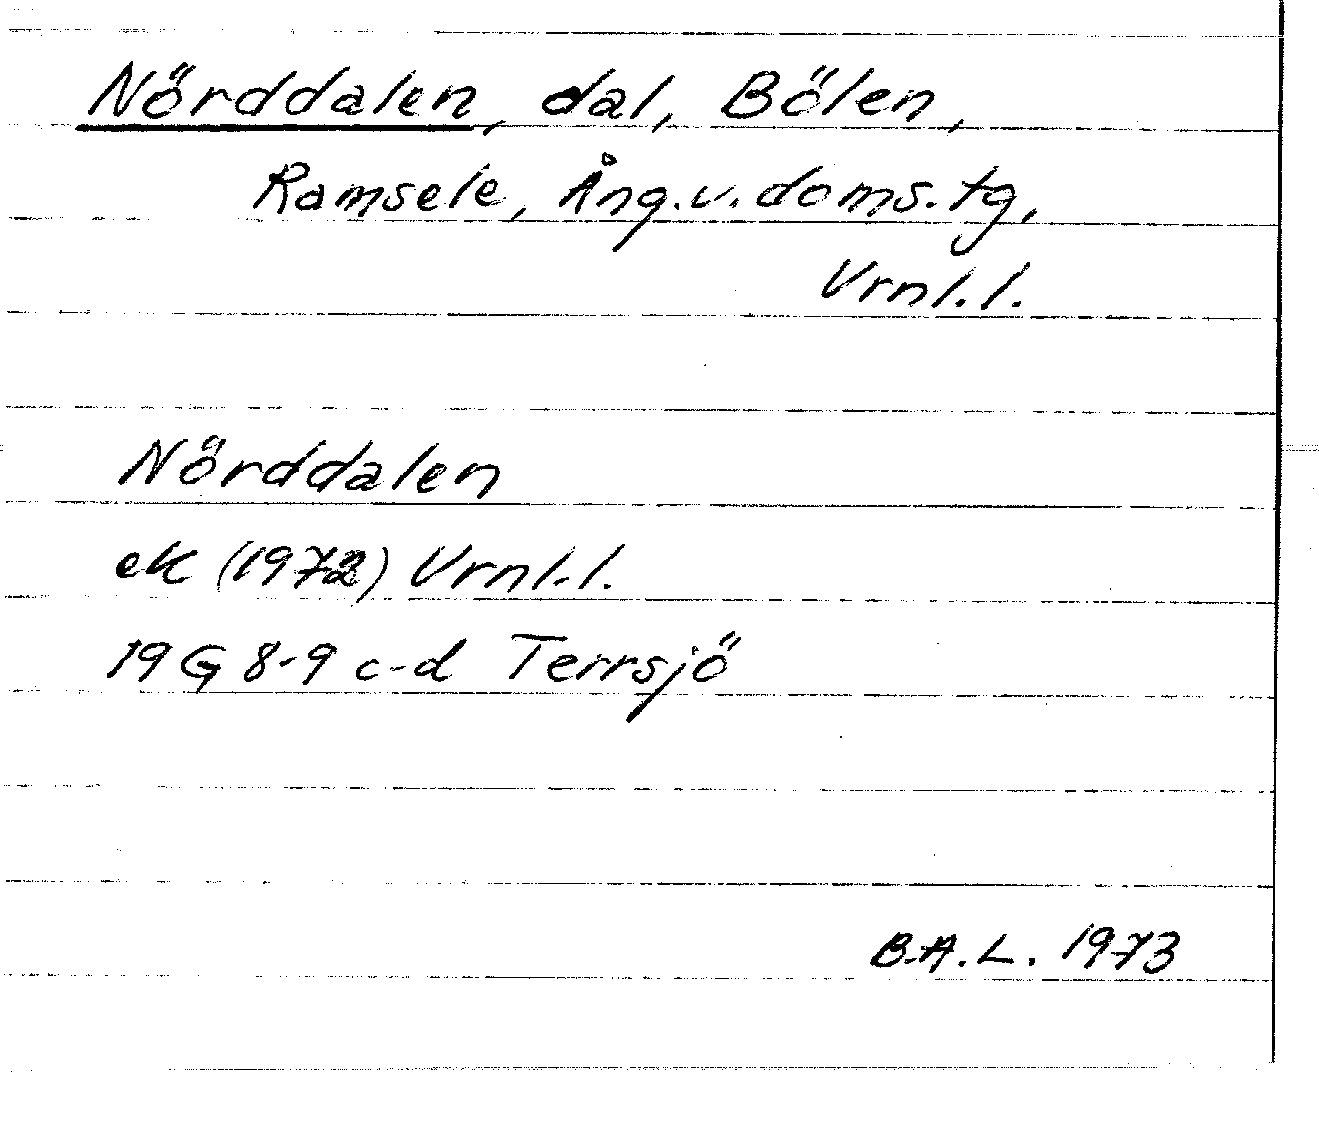 Nörddalen, dal, Bölen,
Ramsele, Ång.v.doms.tg,
Vrnl.l.
Nörddalen
ek (1972) Vrnl.l.
19 G 8-9 c-d Terrsjö
B.A.L. 1973